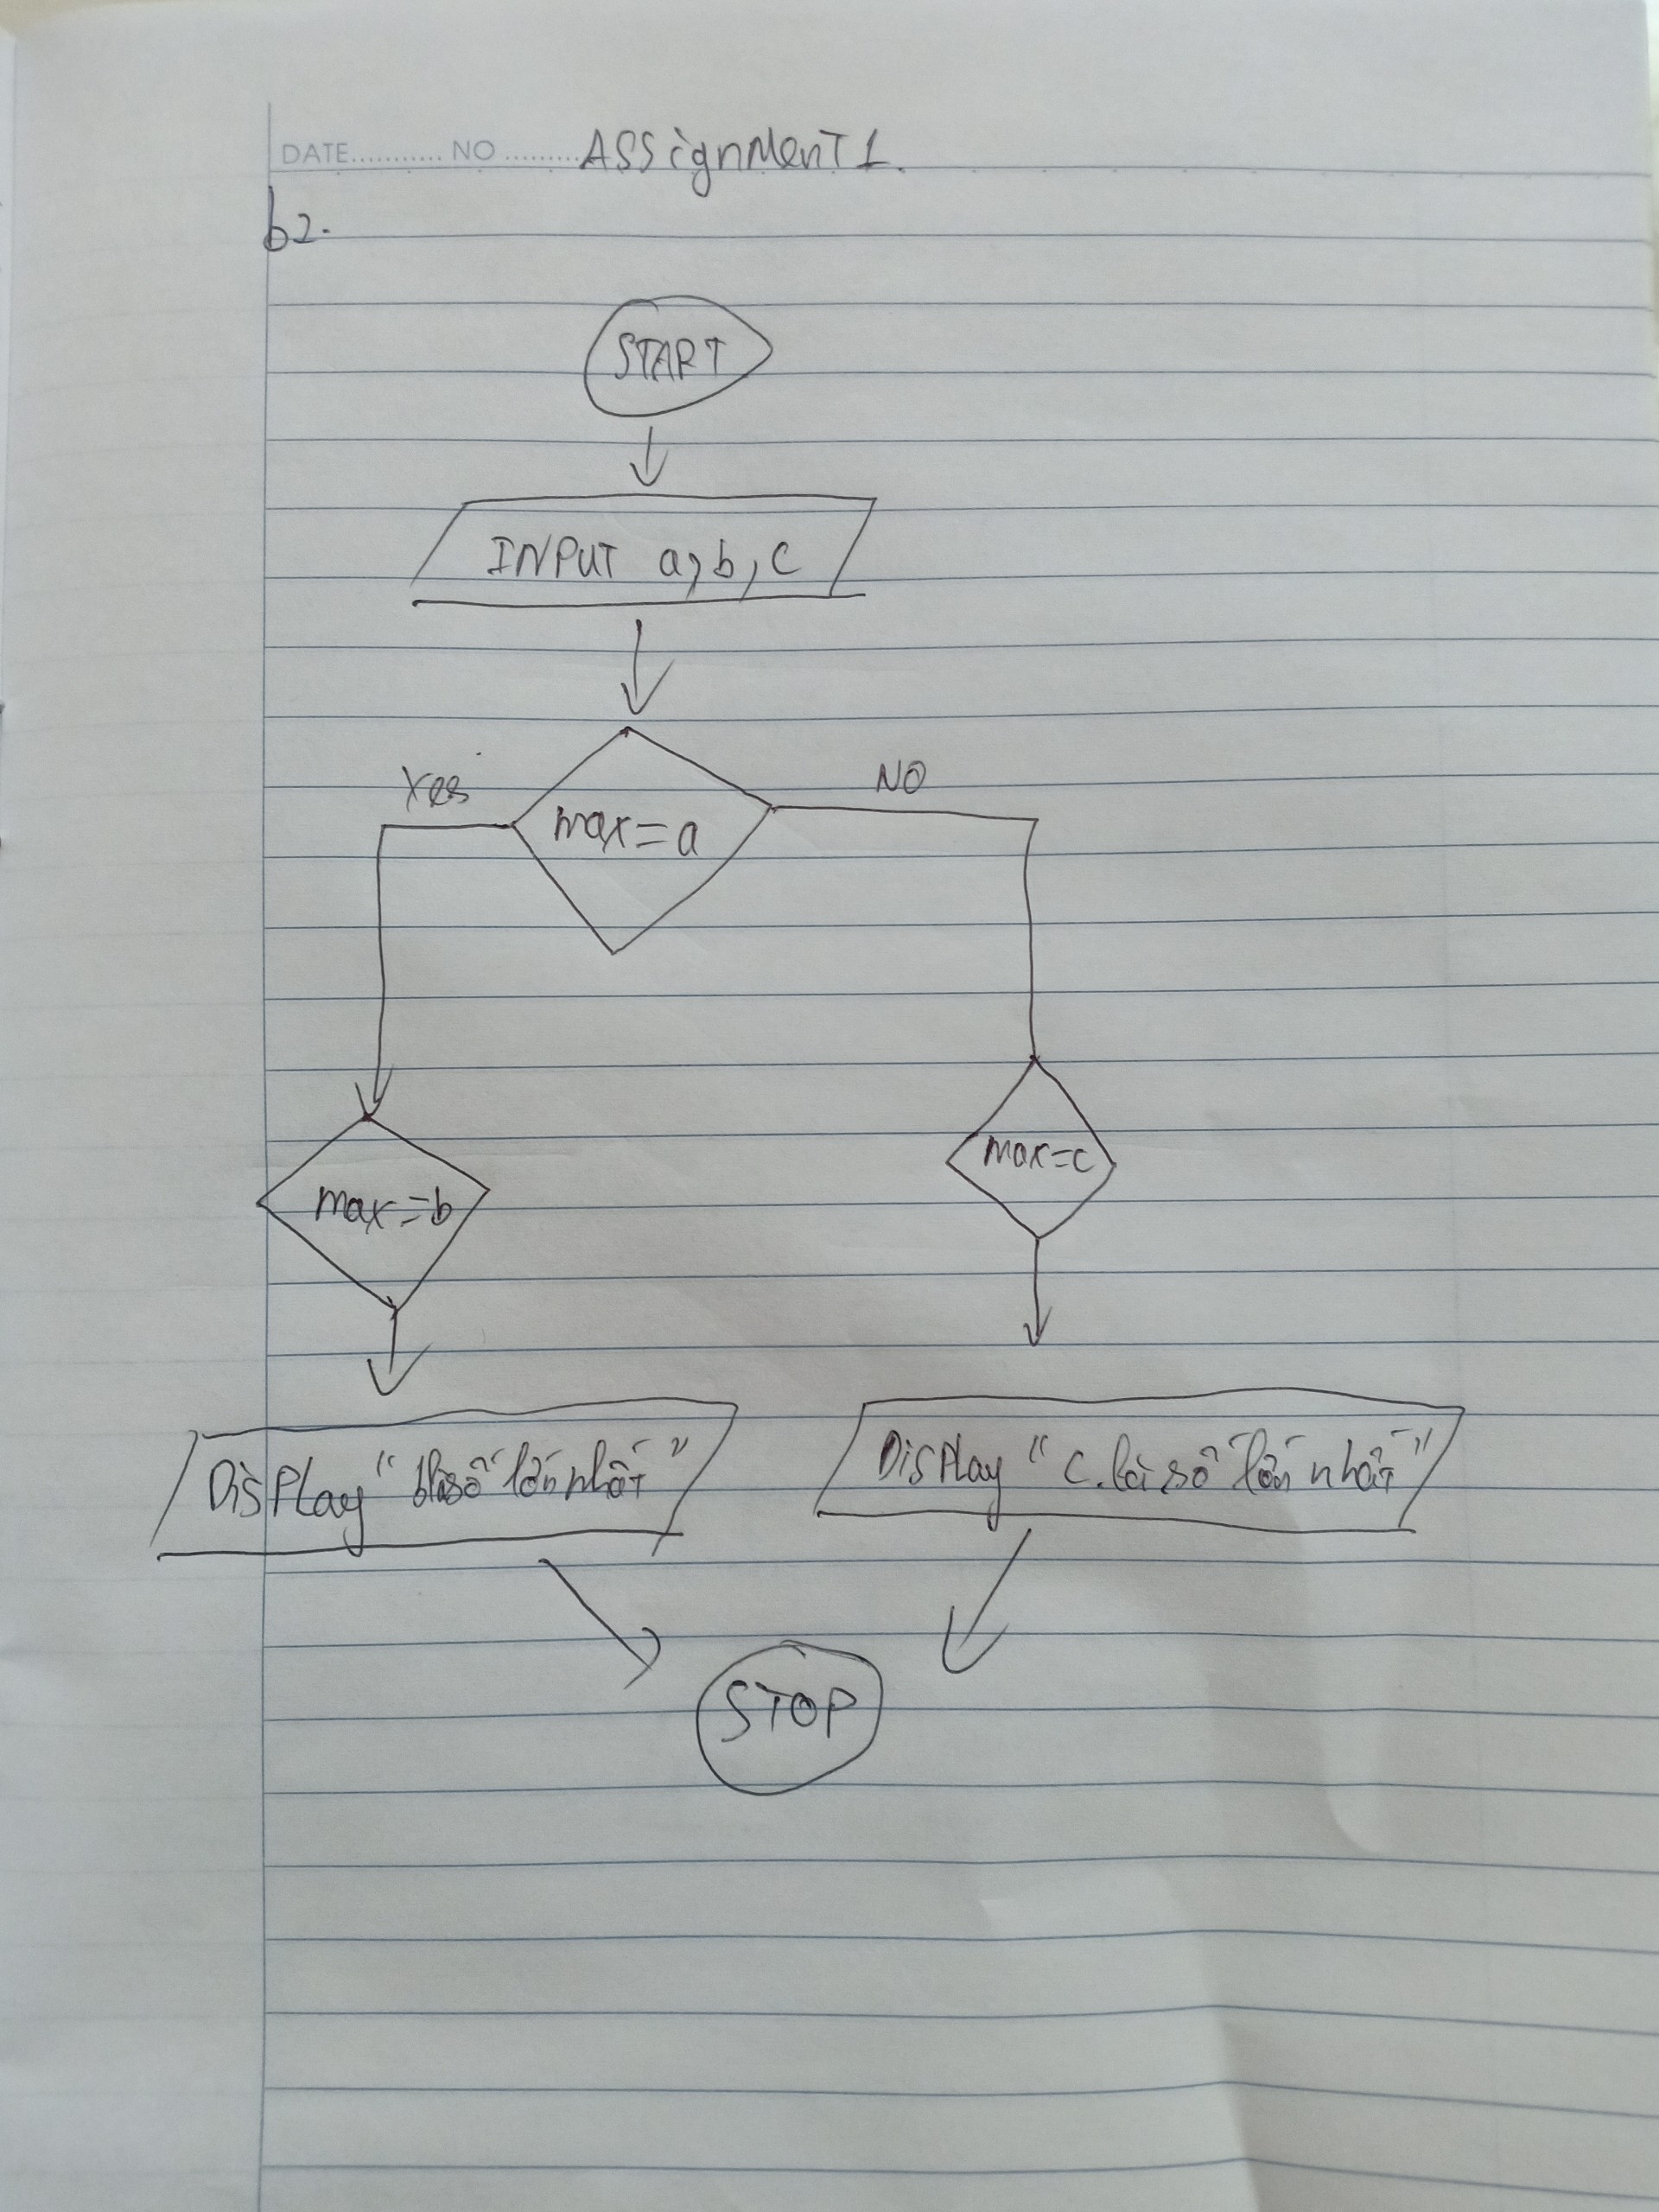 DATE........... NO ......... ASSignMenT 1.
b2.
START
INPUT a, b, c
Yes
NO
max = a
max = c
max = b
DisPlay "b là số lớn nhất"
DisPlay "c là số lớn nhất"
STOP